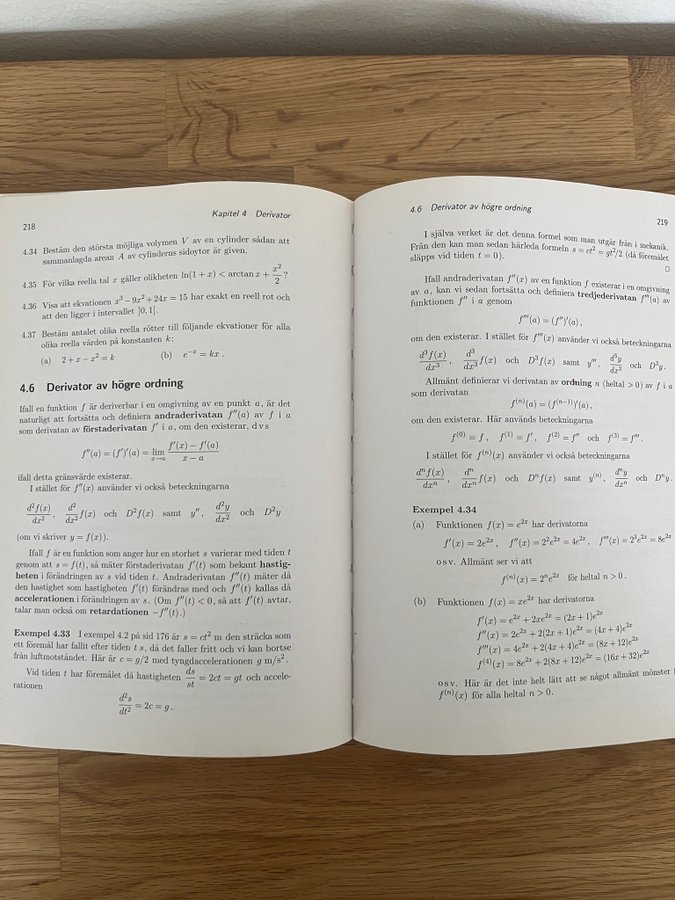 218
Kapitel 4 Derivator
4.34 Bestäm den största möjliga volymen V av en cylinder sådan att
sammanlagda arean A av cylinderns sidoytor är given.
4.35 För vilka reella tal x gäller olikheten ln(1 + x) < arctan x + x²/2 ?
4.36 Visa att ekvationen x³ − 9x² + 24x = 15 har exakt en reell rot och
att den ligger i intervallet ]0, 1[.
4.37 Bestäm antalet olika reella rötter till följande ekvationer för alla
olika reella värden på konstanten k:
(a) 2 + x − x² = k (b) e⁻ˣ = kx .
4.6 Derivator av högre ordning
Ifall en funktion f är deriverbar i en omgivning av en punkt a, är det
naturligt att fortsätta och definiera andraderivatan f″(a) av f i a
som derivatan av förstaderivatan f′ i a, om den existerar, d v s
f″(a) = (f′)′(a) = lim x→a (f′(x) − f′(a))/(x − a)
ifall detta gränsvärde existerar.
I stället för f″(x) använder vi också beteckningarna
d²f(x)/dx² , d²/dx² f(x) och D²f(x) samt y″ , d²y/dx² och D²y
(om vi skriver y = f(x)).
Ifall f är en funktion som anger hur en storhet s varierar med tiden t
genom att s = f(t), så mäter förstaderivatan f′(t) som bekant hastig-
heten i förändringen av s vid tiden t. Andraderivatan f″(t) mäter då
den hastighet som hastigheten f′(t) förändras med och f″(t) kallas då
accelerationen i förändringen av s. (Om f″(t) < 0, så att f′(t) avtar,
talar man också om retardationen −f″(t).)
Exempel 4.33 I exempel 4.2 på sid 176 är s = ct² m den sträcka som
ett föremål har fallit efter tiden t s, då det faller fritt och vi kan bortse
från luftmotståndet. Här är c = g/2 med tyngdaccelerationen g m/s².
Vid tiden t har föremålet då hastigheten ds/st = 2ct = gt och accele-
rationen
d²s/dt² = 2c = g .
4.6 Derivator av högre ordning
219
I själva verket är det denna formel som man utgår från i mekanik.
Från den kan man sedan härleda formeln s = ct² = gt²/2 (då föremålet
släpps vid tiden t = 0).
□
Ifall andraderivatan f″(x) av en funktion f existerar i en omgivning
av a, kan vi sedan fortsätta och definiera tredjederivatan f‴(a) av
funktionen f″ i a genom
f‴(a) = (f″)′(a),
om den existerar. I stället för f‴(x) använder vi också beteckningarna
d³f(x)/dx³ , d³/dx³ f(x) och D³f(x) samt y‴ , d³y/dx³ och D³y.
Allmänt definierar vi derivatan av ordning n (heltal > 0) av f i a
som derivatan
f⁽ⁿ⁾(a) = (f⁽ⁿ⁻¹⁾)′(a),
om den existerar. Här används beteckningarna
f⁽⁰⁾ = f , f⁽¹⁾ = f′ , f⁽²⁾ = f″ och f⁽³⁾ = f‴ .
I stället för f⁽ⁿ⁾(x) använder vi också beteckningarna
dⁿf(x)/dxⁿ , dⁿ/dxⁿ f(x) och Dⁿf(x) samt y⁽ⁿ⁾ , dⁿy/dxⁿ och Dⁿy.
Exempel 4.34
(a) Funktionen f(x) = e²ˣ har derivatorna
f′(x) = 2e²ˣ , f″(x) = 2²e²ˣ = 4e²ˣ , f‴(x) = 2³e²ˣ = 8e²ˣ
o s v. Allmänt ser vi att
f⁽ⁿ⁾(x) = 2ⁿe²ˣ för heltal n > 0 .
(b) Funktionen f(x) = xe²ˣ har derivatorna
f′(x) = e²ˣ + 2xe²ˣ = (2x + 1)e²ˣ
f″(x) = 2e²ˣ + 2(2x + 1)e²ˣ = (4x + 4)e²ˣ
f‴(x) = 4e²ˣ + 2(4x + 4)e²ˣ = (8x + 12)e²ˣ
f⁽⁴⁾(x) = 8e²ˣ + 2(8x + 12)e²ˣ = (16x + 32)e²ˣ
o s v. Här är det inte helt lätt att se något allmänt mönster
f⁽ⁿ⁾(x) för alla heltal n > 0.